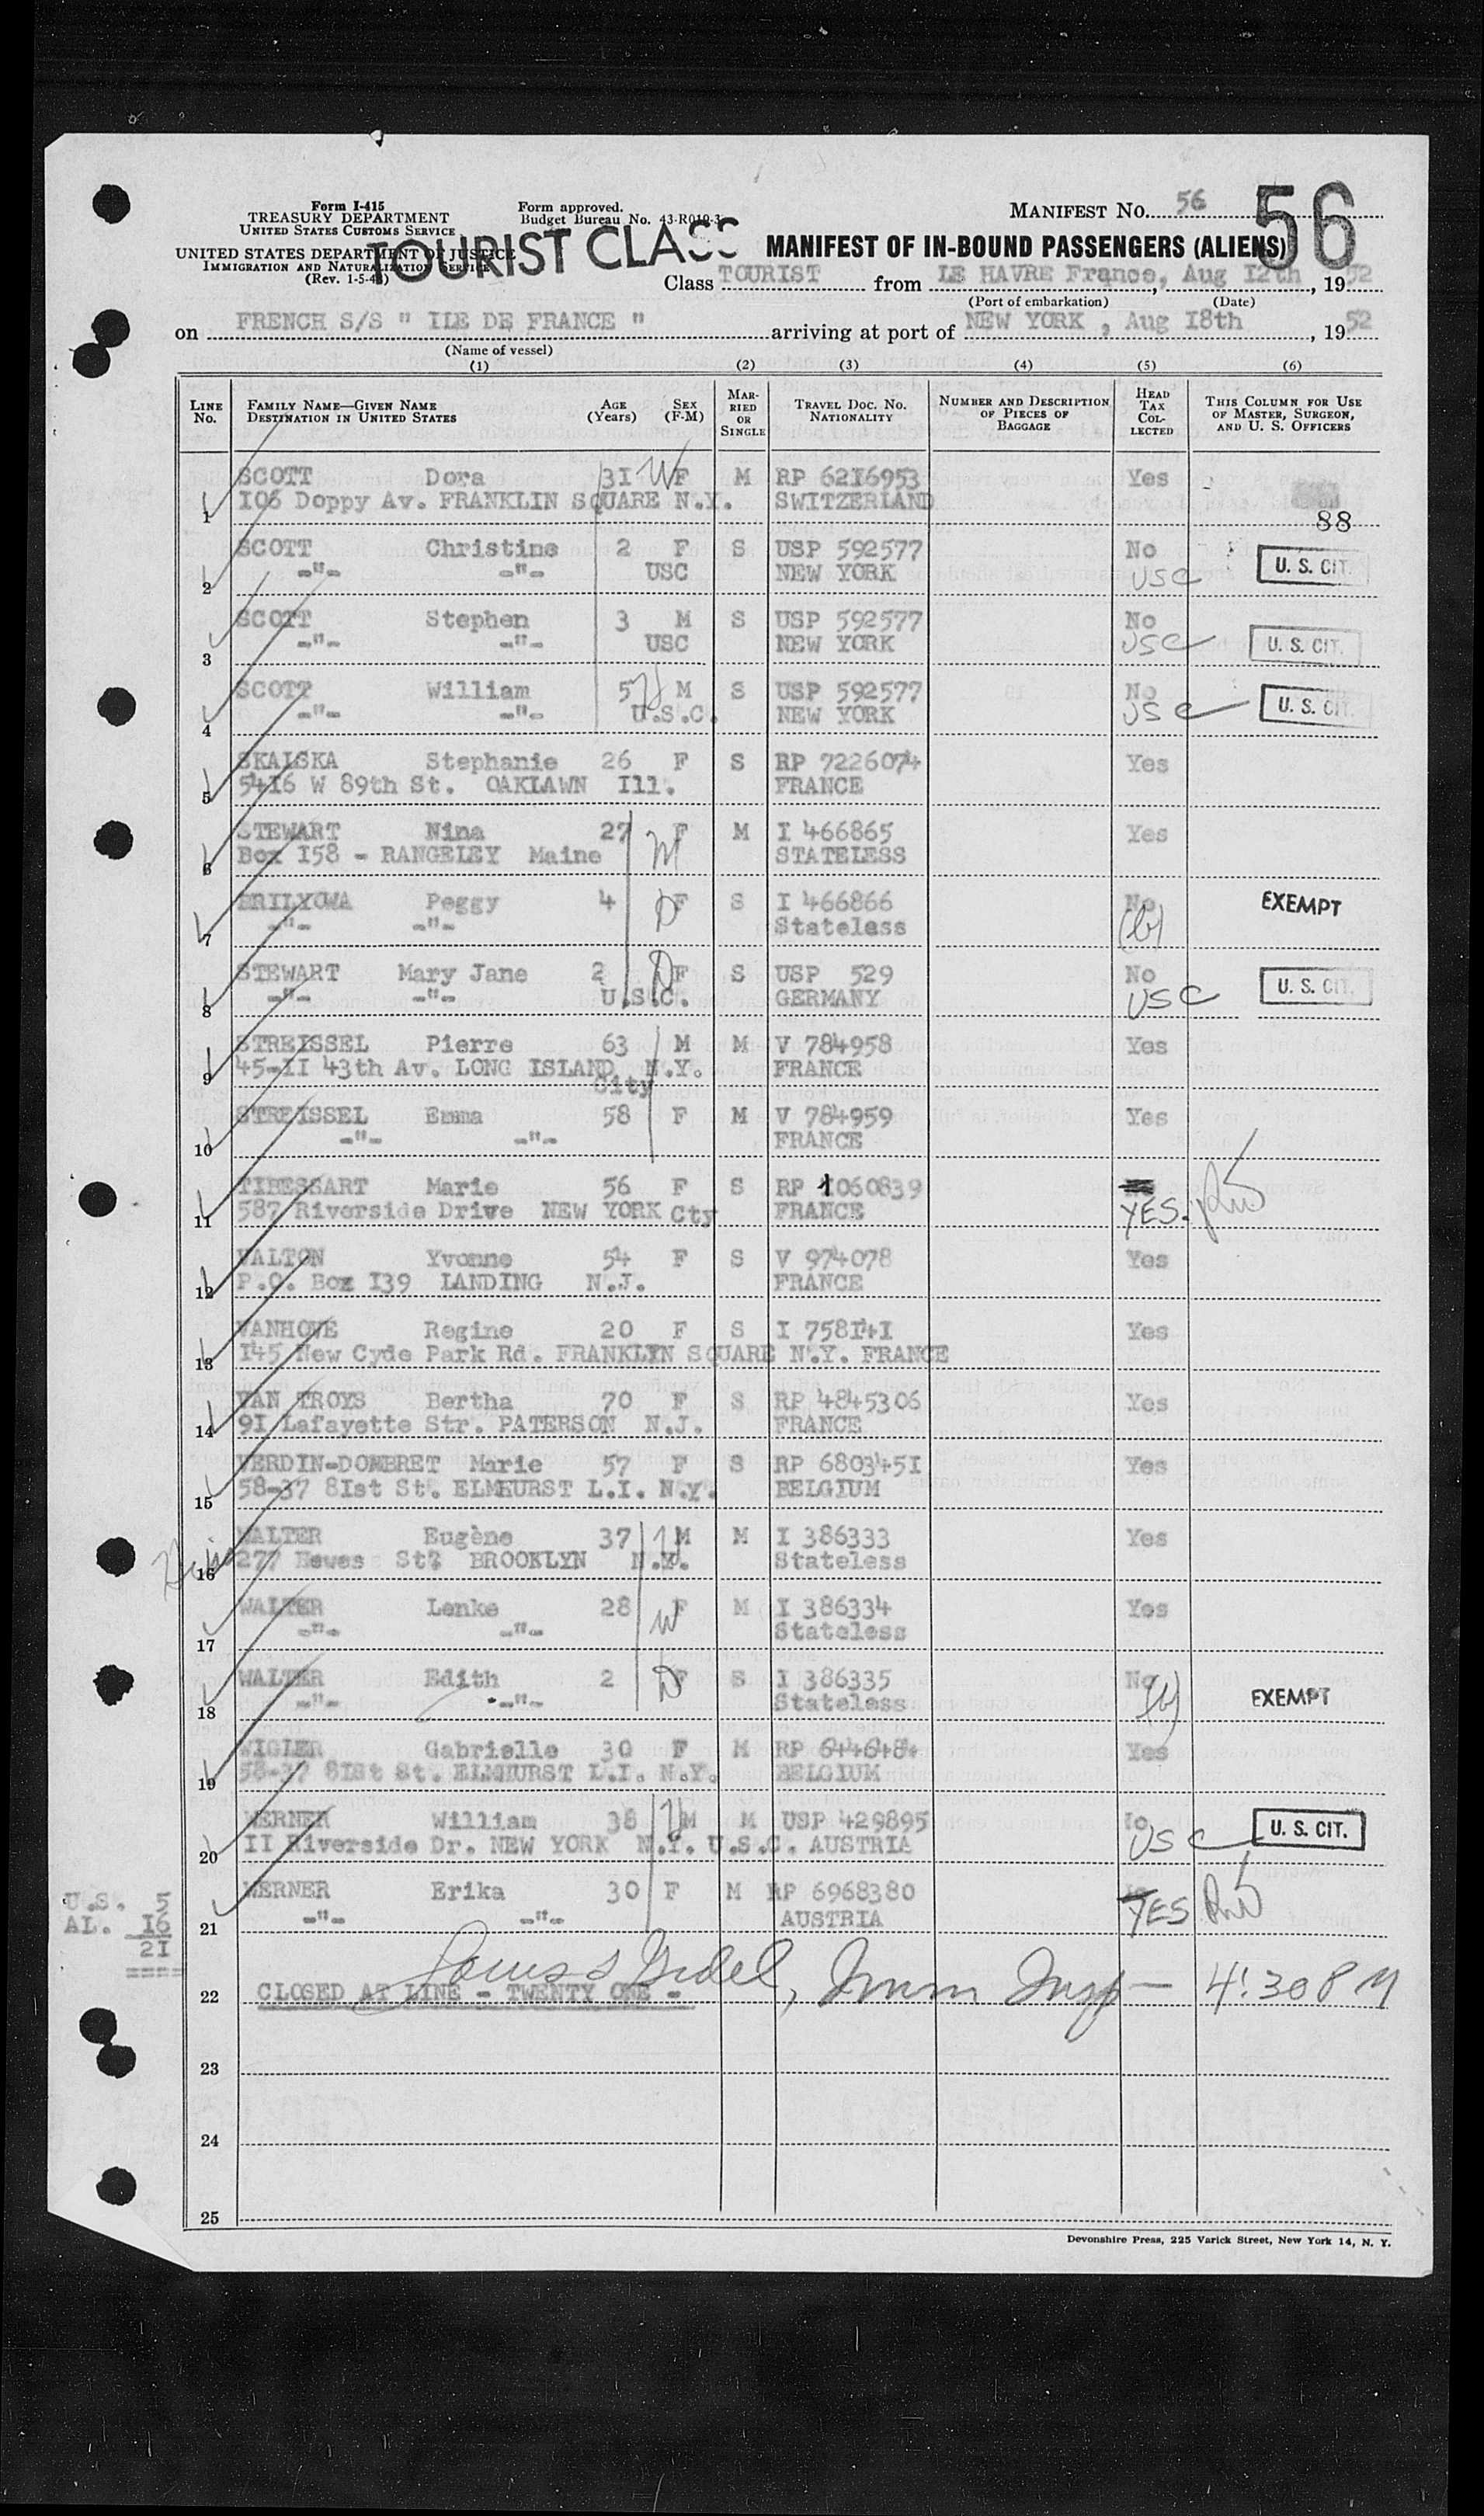 Form I-415
TREASURY DEPARTMENT
UNITED STATES CUSTOMS SERVICE
UNITED STATES DEPARTMENT OF JUSTICE
IMMIGRATION AND NATURALIZATION SERVICE
(Rev. 1-5-4)
Form approved.
Budget Bureau No. 43-R019-3
TOURIST CLASS
MANIFEST NO. 56
56
MANIFEST OF IN-BOUND PASSENGERS (ALIENS)
Class TOURIST from LE HAVRE France, Aug 12th, 1952
(Port of embarkation) (Date)
on FRENCH S/S " ILE DE FRANCE " arriving at port of NEW YORK , Aug 18th , 1952
(Name of vessel)
(1) (2) (3) (4) (5) (6)
LINE No.
FAMILY NAME—GIVEN NAME
DESTINATION IN UNITED STATES
AGE (Years)
SEX (F-M)
MARRIED OR SINGLE
TRAVEL DOC. NO. NATIONALITY
NUMBER AND DESCRIPTION OF PIECES OF BAGGAGE
HEAD TAX COLLECTED
THIS COLUMN FOR USE OF MASTER, SURGEON, AND U. S. OFFICERS
SCOTT Dora 31 W F M RP 6216953 Yes
1 106 Doppy Av. FRANKLIN SQUARE N.Y. SWITZERLAND
88
SCOTT Christine 2 F S USP 592577 No
2 -"- -"- USC NEW YORK USC U. S. CIT.
SCOTT Stephen 3 M S USP 592577 No
3 -"- -"- USC NEW YORK USC U. S. CIT.
SCOTT William 5 M S USP 592577 No
4 -"- -"- U.S.C. NEW YORK USC U. S. CIT.
SKALSKA Stephanie 26 F S RP 7226074 Yes
5 5416 W 89th St. OAKLAWN Ill. FRANCE
STEWART Nina 27 F M I 466865 Yes
6 Box 158 - RANGELEY Maine M STATELESS
BRILYOWA Peggy 4 D F S I 466866 No EXEMPT
7 -"- -"- Stateless (b)
STEWART Mary Jane 2 D F S USP 529 No
8 -"- -"- U.S.C. GERMANY USC U. S. CIT.
STREISSEL Pierre 63 M M V 784958 Yes
9 45-II 43th Av. LONG ISLAND N.Y. FRANCE
City
STREISSEL Emma 58 F M V 784959 Yes
10 -"- -"- FRANCE
TIBESSART Marie 56 F S RP 1060839
11 587 Riverside Drive NEW YORK Cty FRANCE YES.
VALTON Yvonne 54 F S V 974078 Yes
12 P.O. Box 139 LANDING N.J. FRANCE
VANHOVE Regine 20 F S I 758141 Yes
13 145 New Cyde Park Rd. FRANKLYN SQUARE N.Y. FRANCE
VAN TROYS Bertha 70 F S RP 4845306 Yes
14 91 Lafayette Str. PATERSON N.J. FRANCE
VERDIN-DOMBRET Marie 57 F S RP 6803451 Yes
15 58-37 81st St. ELMHURST L.I. N.Y. BELGIUM
WALTER Eugène 37 M M I 386333 Yes
16 277 Hewes St BROOKLYN N.Y. Stateless
WALTER Lenke 28 F M I 386334 Yes
17 -"- -"- W Stateless
WALTER Edith 2 D F S I 386335 No
18 -"- -"- Stateless (b) EXEMPT
WIGLER Gabrielle 30 F M RP 644648 Yes
19 58-37 81st St. ELMHURST L.I. N.Y. BELGIUM
WERNER William 38 M M USP 429895
20 11 Riverside Dr. NEW YORK N.Y. U.S.C. AUSTRIA USC U. S. CIT.
WERNER Erika 30 F M RP 6968380
21 -"- -"- AUSTRIA YES
U.S. 5
AL. 16
21
====
22 CLOSED AT LINE - TWENTY ONE - , Imm Insp — 4:30 PM
23
24
25
Devonshire Press, 225 Varick Street, New York 14, N. Y.